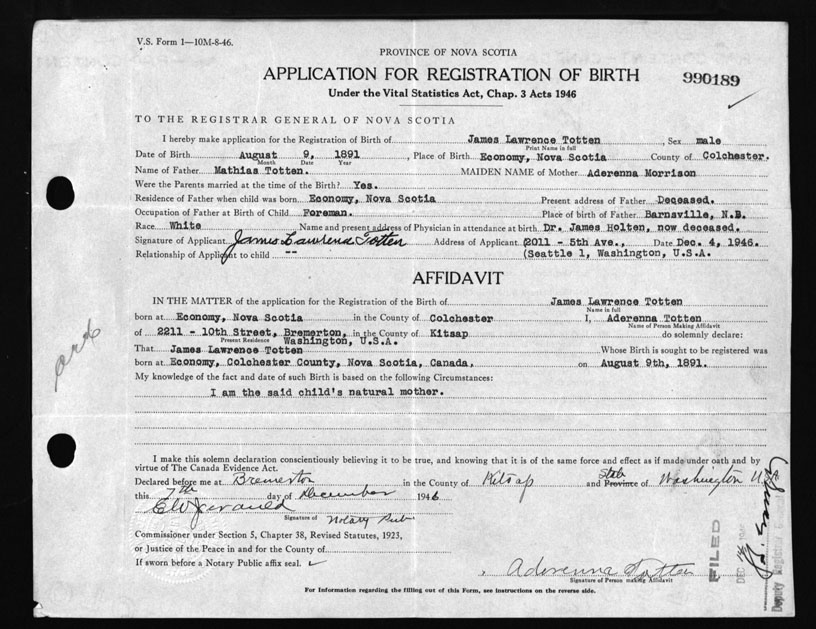 V.S. Form 1—10M-8-46.
PROVINCE OF NOVA SCOTIA
APPLICATION FOR REGISTRATION OF BIRTH
990189
Under the Vital Statistics Act, Chap. 3 Acts 1946
TO THE REGISTRAR GENERAL OF NOVA SCOTIA
I hereby make application for the Registration of Birth of James Lawrence Totten, Sex male
Print Name in full
Date of Birth August 9, 1891, Place of Birth Economy, Nova Scotia County of Colchester.
Month Date Year
Name of Father Mathias Totten. MAIDEN NAME of Mother Aderenna Morrison
Were the Parents married at the time of the Birth? Yes.
Residence of Father when child was born Economy, Nova Scotia Present address of Father Deceased.
Occupation of Father at Birth of Child Foreman. Place of birth of Father Barnsville, N.B.
Race White Name and present address of Physician in attendance at birth Dr. James Holten, now deceased.
Signature of Applicant James Lawrence Totten Address of Applicant (2011 - 5th Ave., Date Dec. 4, 1946.
Relationship of Applicant to child -- (Seattle 1, Washington, U.S.A.
AFFIDAVIT
IN THE MATTER of the application for the Registration of the Birth of James Lawrence Totten
Name in full
born at Economy, Nova Scotia in the County of Colchester I, Aderenna Totten
Name of Person Making Affidavit
of 2211 - 10th Street, Bremerton, in the County of Kitsap do solemnly declare:
Present Residence Washington, U.S.A.
That James Lawrence Totten Whose Birth is sought to be registered was
born at Economy, Colchester County, Nova Scotia, Canada, on August 9th, 1891.
My knowledge of the fact and date of such Birth is based on the following Circumstances:
I am the said child's natural mother.
I make this solemn declaration conscientiously believing it to be true, and knowing that it is of the same force and effect as if made under oath and by
virtue of The Canada Evidence Act.
Declared before me at Bremerton in the County of Kitsap and Province of State Washington
this 7th day of December 1946
Signature of Notary Pub
Commissioner under Section 5, Chapter 38, Revised Statutes, 1923,
or Justice of the Peace in and for the County of
If sworn before a Notary Public affix seal. ✓
Aderenna Totten
Signature of Person making Affidavit
For Information regarding the filling out of this Form, see instructions on the reverse side.
FILED
DEC
Deputy Registrar